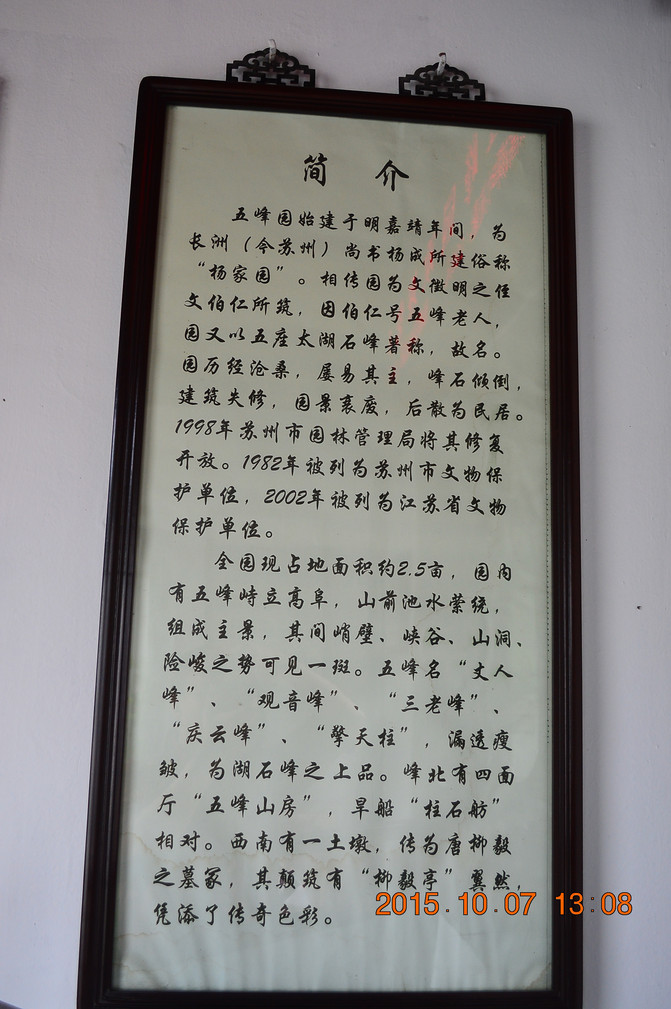 简 介
五峰园始建于明嘉靖年间，为
长洲（今苏州）尚书杨成所建俗称
“杨家园”。相传园为文徵明之侄
文伯仁所筑，因伯仁号五峰老人，
园又以五座太湖石峰著称，故名。
园历经沧桑，屡易其主，峰石倾倒，
建筑失修，园景衰废，后散为民居。
1998年苏州市园林管理局将其修复
开放。1982年被列为苏州市文物保
护单位，2002年被列为江苏省文物
保护单位。
全园现占地面积约2.5亩，园内
有五峰峙立高阜，山前池水萦绕，
组成主景，其间峭壁、峡谷、山洞、
险峻之势可见一斑。五峰名“丈人
峰”、“观音峰”、“三老峰”、
“庆云峰”、“擎天柱”，漏透瘦
皱，为湖石峰之上品。峰北有四面
厅“五峰山房”，旱船“柱石舫”
相对。西南有一土墩，传为唐柳毅
之墓冢，其颠筑有“柳毅亭”翼然，
凭添了传奇色彩。
2015.10.07 13:08